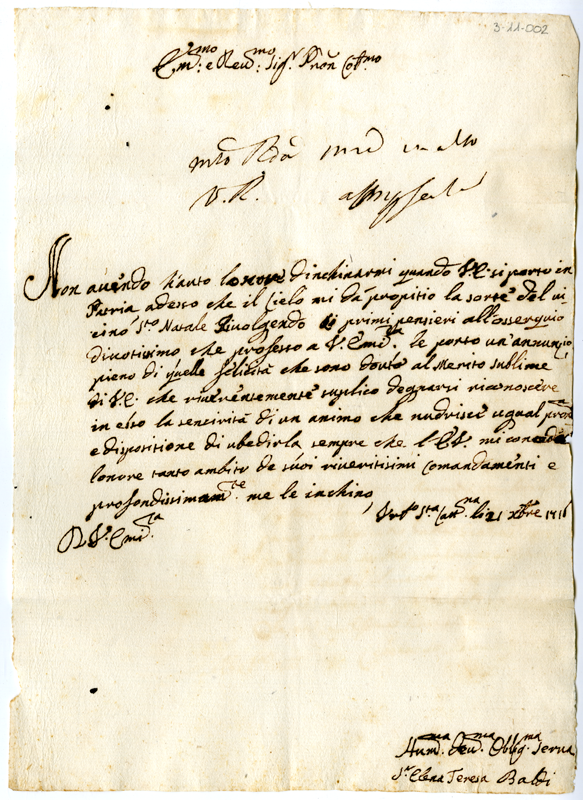 3-11-002
Em:mo e Reu:mo Sig.r Pron Coll:mo
V. R.
Non auendo hauto lonore dinchinarmi quando V.E. si porto in
Patria adesso che il Cielo mi dà propitio la sorte del ui
cino S.to Natale riuolgendo i primi pensieri all'osserquio
diuotissimo che professo a V. Emi.za le porto un'annunzio
pieno di quelle felicità che sono douute al Merito sublime
di V.E. che riuerentemente suplico degnarsi riconoscere
in esso la sencirità di un animo che nudrisce ugual
e dispositione di ubedirla sempre che l'E.V. mi conceda
lonore tanto ambito de suoi riueritisimi comandamenti e
profondissimam.te me le inchino
S.ta li 21 Xbre
D V. Emi.za
Hum.ma Deu.ma Oblig.ma Serua
S.r Elena Teresa Baldi